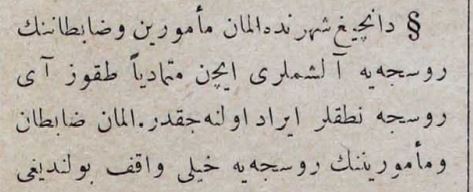 § دانچیغ شهرنده المان مأمورین وضابطاننك
روسجه‌یه آلشملری ایچن متمادیاً طقوز آی
روسجه نطقلر ایراد اولنه‌جقدر. المان ضابطان
ومأموریننك روسجه‌یه خیلی واقف بولندیغی